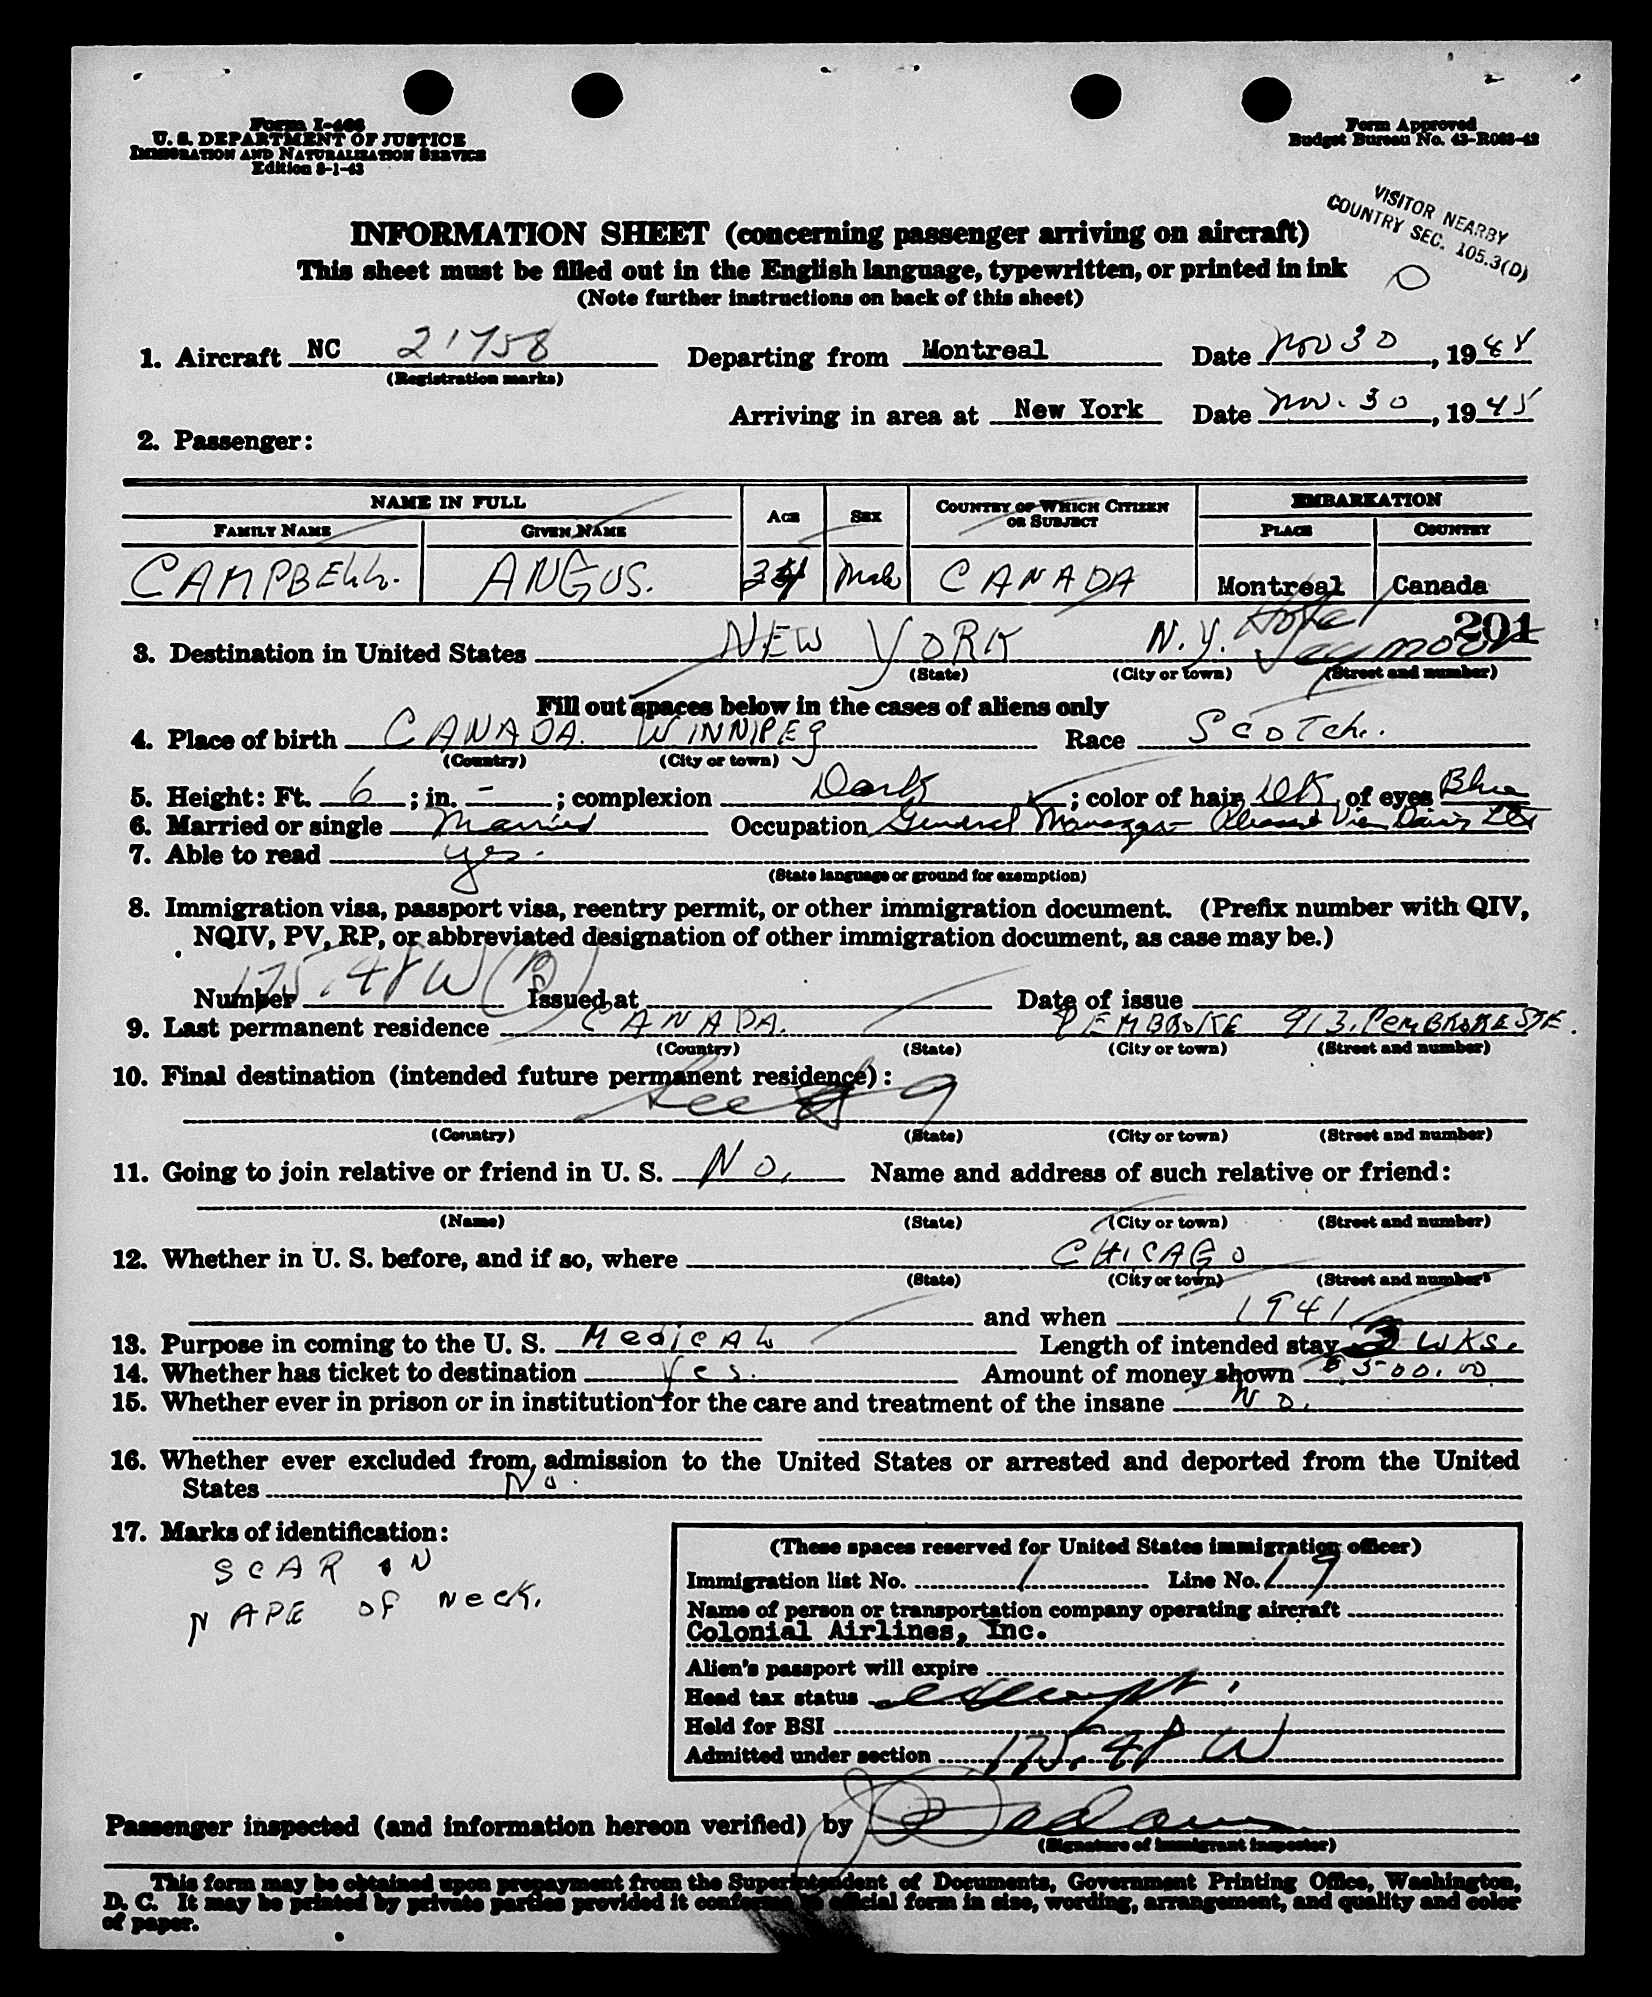 Form I-466
U. S. DEPARTMENT OF JUSTICE
IMMIGRATION AND NATURALIZATION SERVICE
Edition 8-1-43
Form Approved
Budget Bureau No. 43-R063-42
VISITOR NEARBY
COUNTRY SEC. 105.3(D)
INFORMATION SHEET (concerning passenger arriving on aircraft)
This sheet must be filled out in the English language, typewritten, or printed in ink
(Note further instructions on back of this sheet)
1. Aircraft NC 21758 Departing from Montreal Date Nov 30, 19
(Registration marks)
Arriving in area at New York Date Nov. 30, 1945
2. Passenger:
NAME IN FULL AGE SEX COUNTRY OF WHICH CITIZEN OR SUBJECT EMBARKATION
FAMILY NAME GIVEN NAME PLACE COUNTRY
CAMPBELL. ANGUS. 34 Male CANADA Montreal Canada
201
3. Destination in United States NEW YORK N.Y. Hotel Seymour
(State) (City or town) (Street and number)
Fill out spaces below in the cases of aliens only
4. Place of birth CANADA. WINNIPEG Race SCOTCH.
(Country) (City or town)
5. Height: Ft. 6; in. -; complexion Dark; color of hair DK of eyes Blue
6. Married or single Married Occupation General Manager
7. Able to read yes.
(State language or ground for exemption)
8. Immigration visa, passport visa, reentry permit, or other immigration document. (Prefix number with QIV,
NQIV, PV, RP, or abbreviated designation of other immigration document, as case may be.)
Number 175.48W(B) Issued at Date of issue
9. Last permanent residence CANADA. PEMBROKE 913. PEMBROKE STE.
(Country) (State) (City or town) (Street and number)
10. Final destination (intended future permanent residence):
See 9
(Country) (State) (City or town) (Street and number)
11. Going to join relative or friend in U. S. No. Name and address of such relative or friend:
(Name) (State) (City or town) (Street and number)
12. Whether in U. S. before, and if so, where CHICAGO
(State) (City or town) (Street and number)
and when 1941
13. Purpose in coming to the U. S. MEDICAL Length of intended stay 3 WKS.
14. Whether has ticket to destination Yes. Amount of money shown $500.00
15. Whether ever in prison or in institution for the care and treatment of the insane NO.
16. Whether ever excluded from admission to the United States or arrested and deported from the United
States No.
17. Marks of identification:
SCAR ON
NAPE OF NECK.
(These spaces reserved for United States immigration officer)
Immigration list No. 1 Line No. 19
Name of person or transportation company operating aircraft
Colonial Airlines, Inc.
Alien's passport will expire
Head tax status exempt.
Held for BSI
Admitted under section 175.48 W
Passenger inspected (and information hereon verified) by
(Signature of immigrant inspector)
This form may be obtained upon prepayment from the Superintendent of Documents, Government Printing Office, Washington,
D. C. It may be printed by private parties provided it conforms to official form in size, wording, arrangement, and quality and color
of paper.